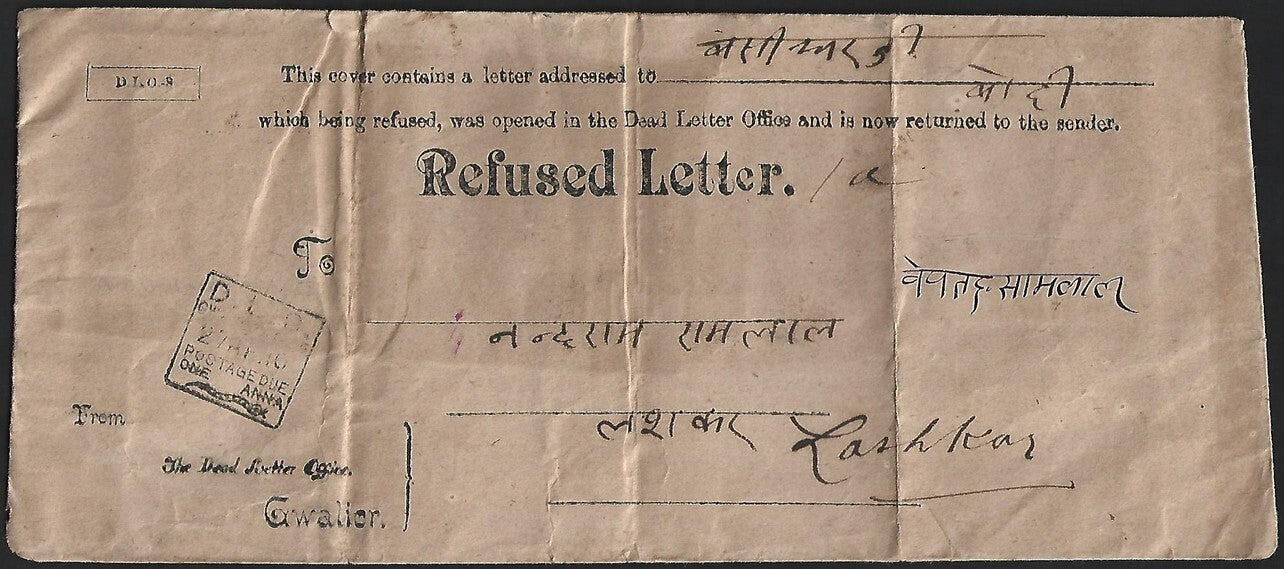 D.L.O.-8
This cover contains a letter addressed to
which being refused, was opened in the Dead Letter Office and is now returned to the sender.
Refused Letter. / a
To
नन्दराम रामलाल
D. L.
27 AP. 10
POSTAGE DUE
ONE ANNA
लशकर Lashkar
From
The Dead Letter Office.
Gwalior.